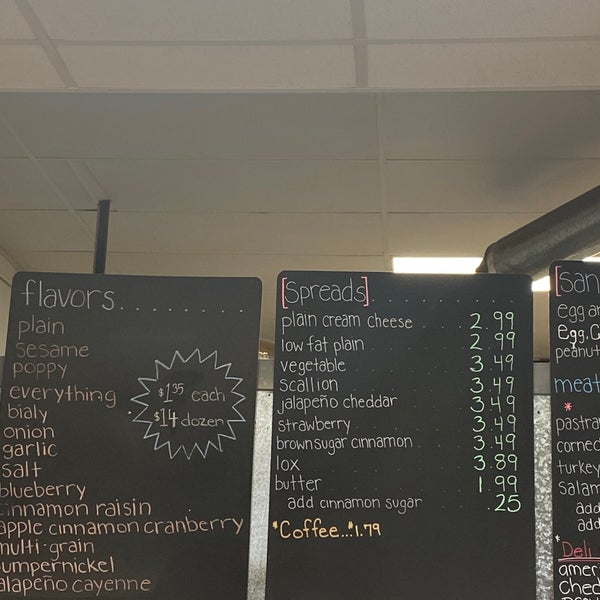 flavors........
plain
sesame
poppy
everything
bialy
onion
garlic
salt
blueberry
cinnamon raisin
apple cinnamon cranberry
multi-grain
pumpernickel
jalapeño cayenne
$1.35 each
$14 dozen
[Spreads]........
plain cream cheese 2.99
low fat plain 2.99
vegetable 3.49
scallion 3.49
jalapeño cheddar 3.49
strawberry 3.49
brown sugar cinnamon 3.49
lox 3.89
butter 1.99
add cinnamon sugar .25
*Coffee...*1.79
[San
egg
egg.
peanut
meat
*
corned
turkey
salam
add
add
*Deli